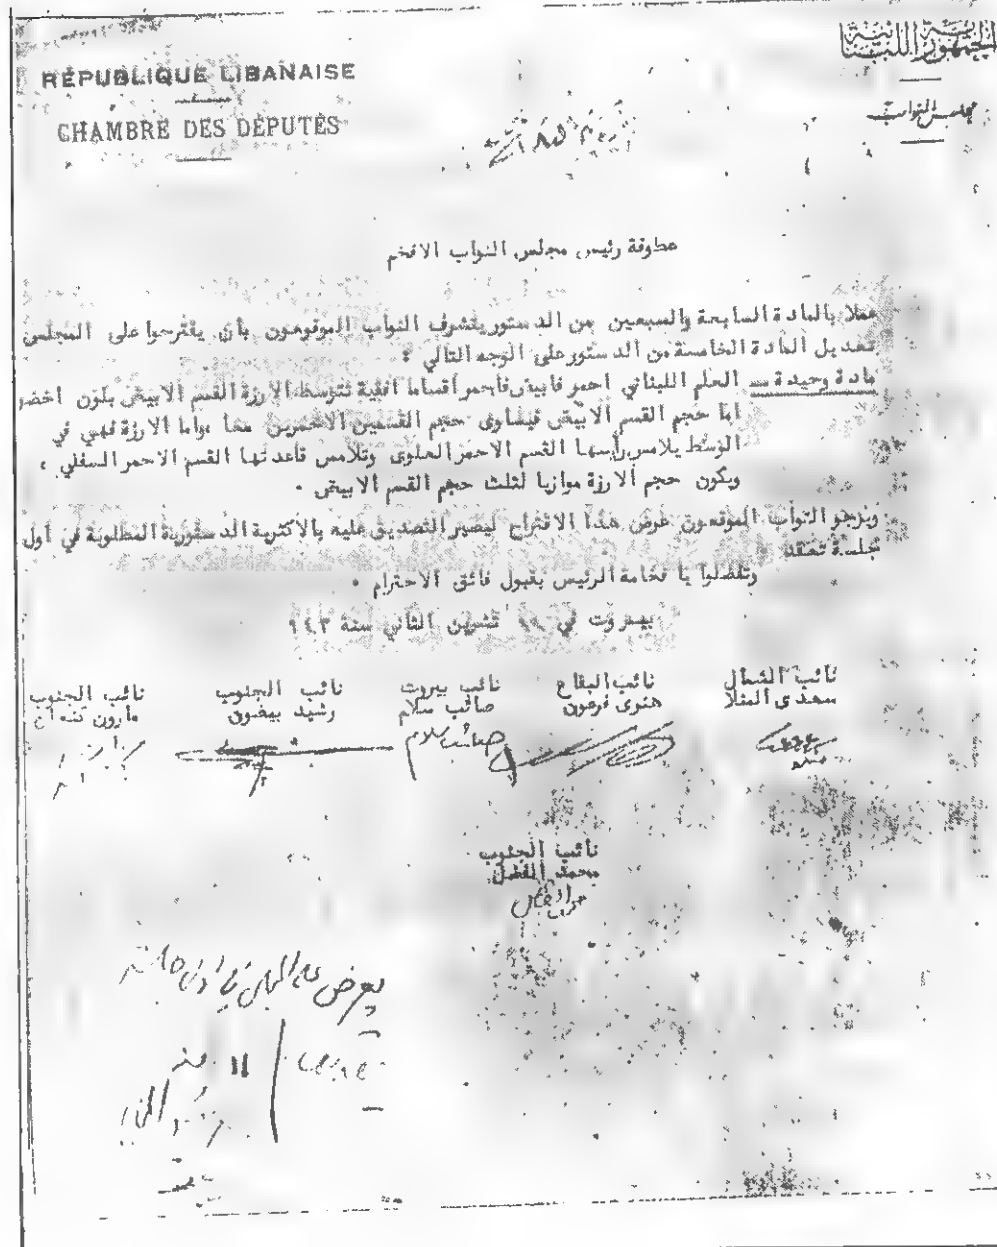 RÉPUBLIQUE LIBANAISE
CHAMBRE DES DÉPUTÉS
الجمهورية اللبنانية
مجلس النواب
عطوفة رئيس مجلس النواب الافخم
عملا بالمادة السابعة والسبعين من الدستور يتشرف النواب الموقعون بأن يقترحوا على المجلس
تعديل المادة الخامسة من الدستور على الوجه التالي :
مادة وحيدة ــ العلم اللبناني احمر فابيض فاحمر أقساما افقية تتوسط الارزة القسم الابيض بلون اخضر
اما حجم القسم الابيض فيساوى حجم القسمين الاحمرين معا ، واما الارزة فهي في
الوسط يلامس رأسها القسم الاحمر العلوى وتلامس قاعدتها القسم الاحمر السفلي ،
ويكون حجم الارزة موازيا لثلث حجم القسم الابيض ٠
ويرجو النواب الموقعون عرض هذا الاقتراح ليصير التصديق عليه بالاكثرية الدستورية المطلوبة في أول
جلسة تعقد
وتفضلوا يا فخامة الرئيس بقبول فائق الاحترام ٠
بيروت في تشرين الثاني سنة ٩٤٣
نائب الشمال نائب البقاع نائب بيروت نائب الجنوب نائب الجنوب
سعدى المنلا هنرى فرعون صائب سلام رشيد بيضون مارون كنعان
صائب سلام
نائب الجنوب
محمد الفضل
يعرض على المجلس في اول جلسة